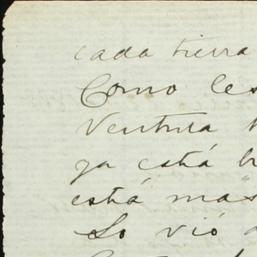 cada tierra
Como les
Ventura
ya está
está mas
Lo vió